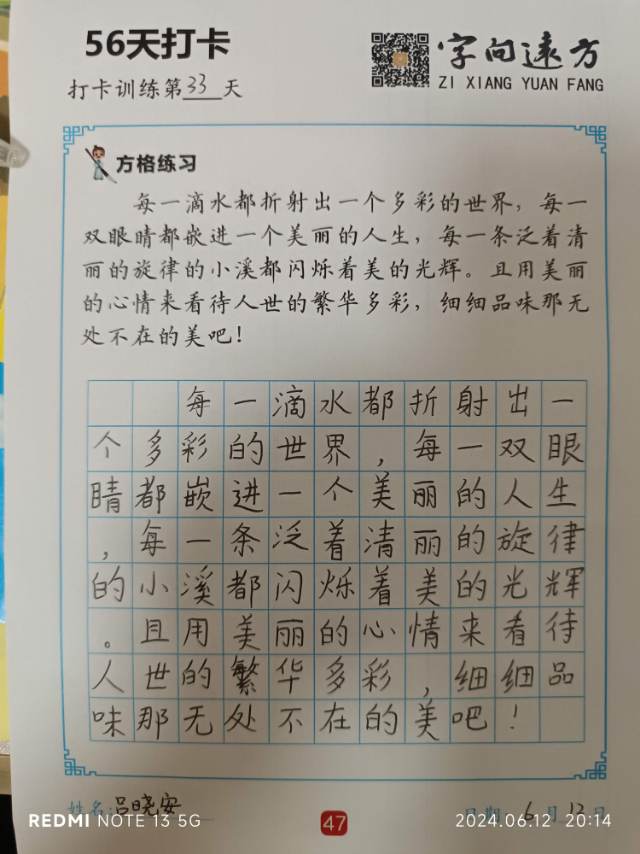 56天打卡
字向远方
打卡训练第33天
ZI XIANG YUAN FANG
方格练习
每一滴水都折射出一个多彩的世界，每一
双眼睛都嵌进一个美丽的人生，每一条泛着清
丽的旋律的小溪都闪烁着美的光辉。且用美丽
的心情来看待人世的繁华多彩，细细品味那无
处不在的美吧！
每一滴水都折射出一
个多彩的世界，每一双眼
睛都嵌进一个美丽的人生
，每一条泛着清丽的旋律
的小溪都闪烁着美的光辉
。且用美丽的心情来看待
人世的繁华多彩，细细品
味那无处不在的美吧！
姓名：吕晓安
日期 6月12日
REDMI NOTE 13 5G
47
2024.06.12 20:14